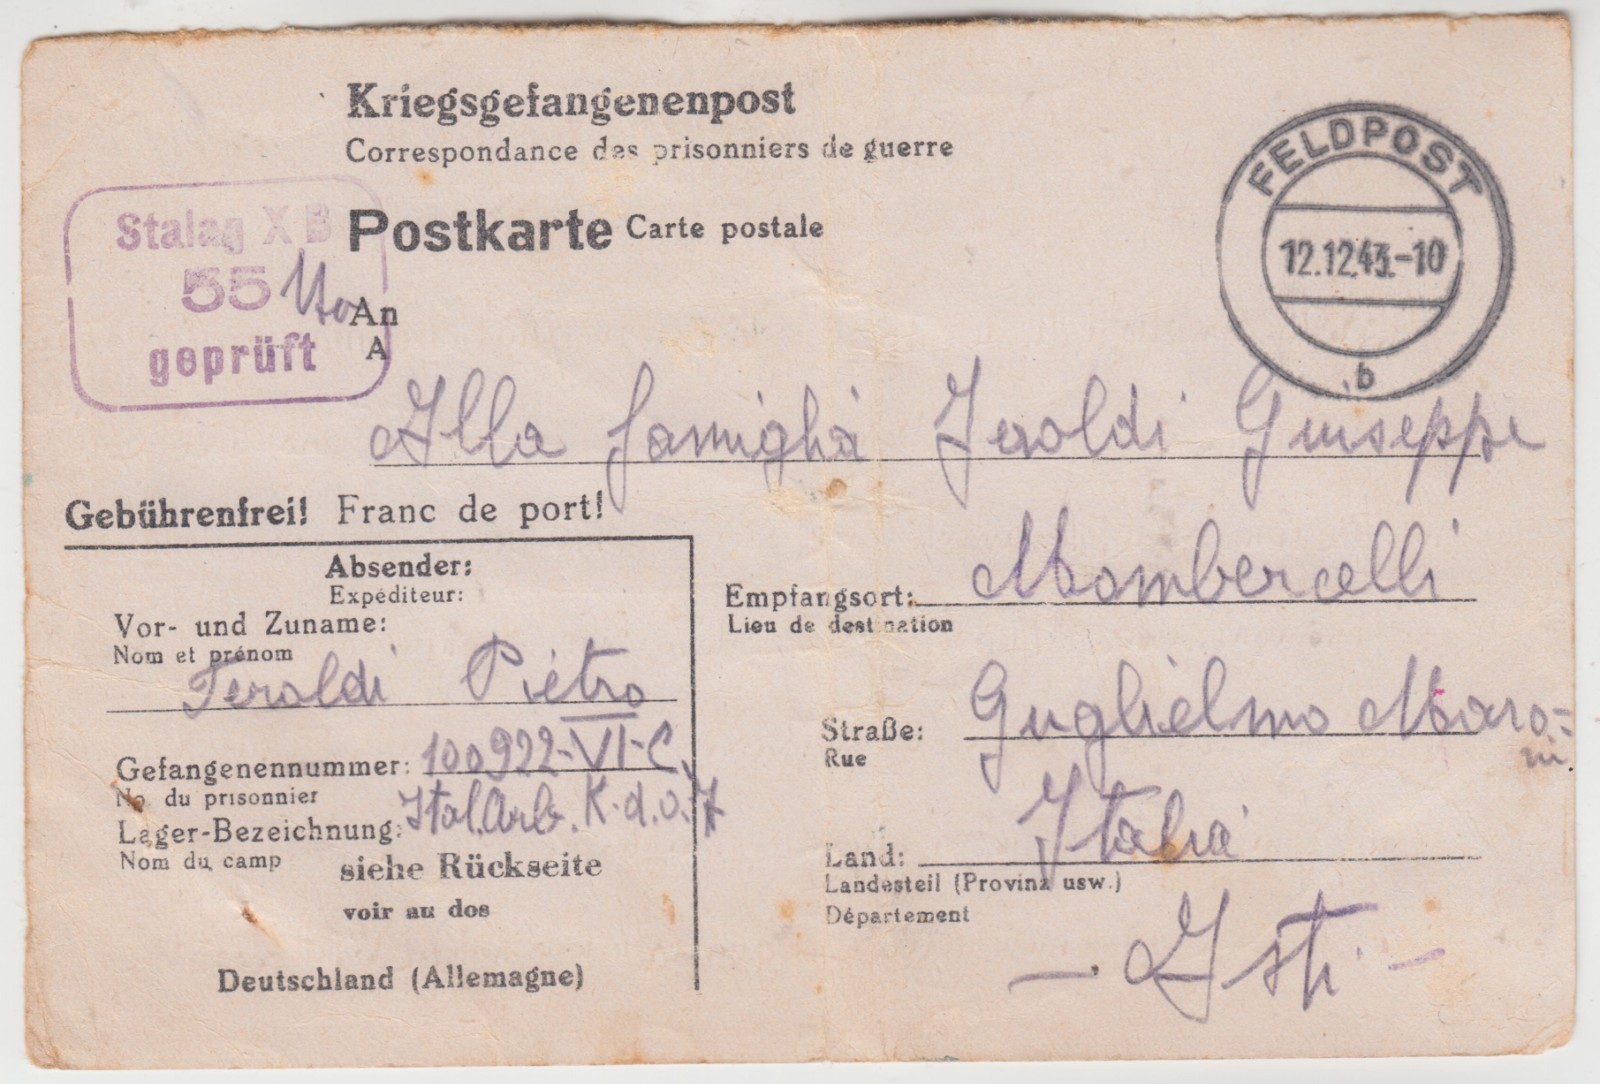 Kriegsgefangenenpost
Correspondance des prisonniers de guerre
Postkarte Carte postale
FELDPOST
12.12.43.-10
b
Stalag X B
55
geprüft
An
A
Alla famiglia Feroldi Giuseppe
Gebührenfrei! Franc de port!
Absender:
Expéditeur:
Vor- und Zuname:
Nom et prénom
Feroldi Pietro
Gefangenennummer: 100922-VI-C.
No. du prisonnier
Lager-Bezeichnung: Ital. Arb. K-d.o. 7
Nom du camp
siehe Rückseite
voir au dos
Deutschland (Allemagne)
Empfangsort: Mombercelli
Lieu de destination
Straße: Guglielmo Marco=
Rue
ni
Land: Italia
Landesteil (Provinz usw.)
Département
- Asti -